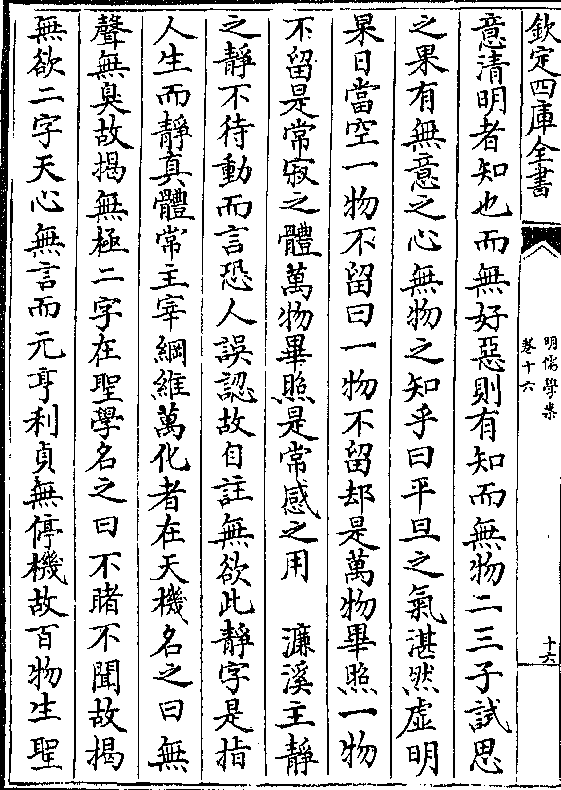 欽定四庫全書
明儒學案
卷十六
十六
意清明者知也而無好惡則有知而無物二三子試思
之果有無意之心無物之知乎曰平旦之氣湛然虛明
果日當空一物不留曰一物不留却是萬物畢照一物
不留是常寂之體萬物畢照是常感之用　濂溪主靜
之靜不待動而言恐人誤認故自註無欲此靜字是指
人生而靜真體常主宰綱維萬化者在天機名之曰無
聲無臭故揭無極二字在聖學名之曰不睹不聞故揭
無欲二字天心無言而元亨利貞無停機故百物生聖